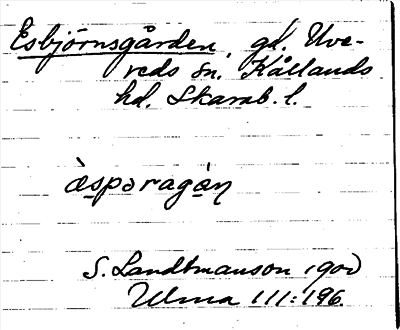 Esbjörnsgården, gd. Uve-
reds sn. Kållands
hd. Skarab. l.
àspəragáṇ
S. Landtmanson 1900
Ulma 111:196.